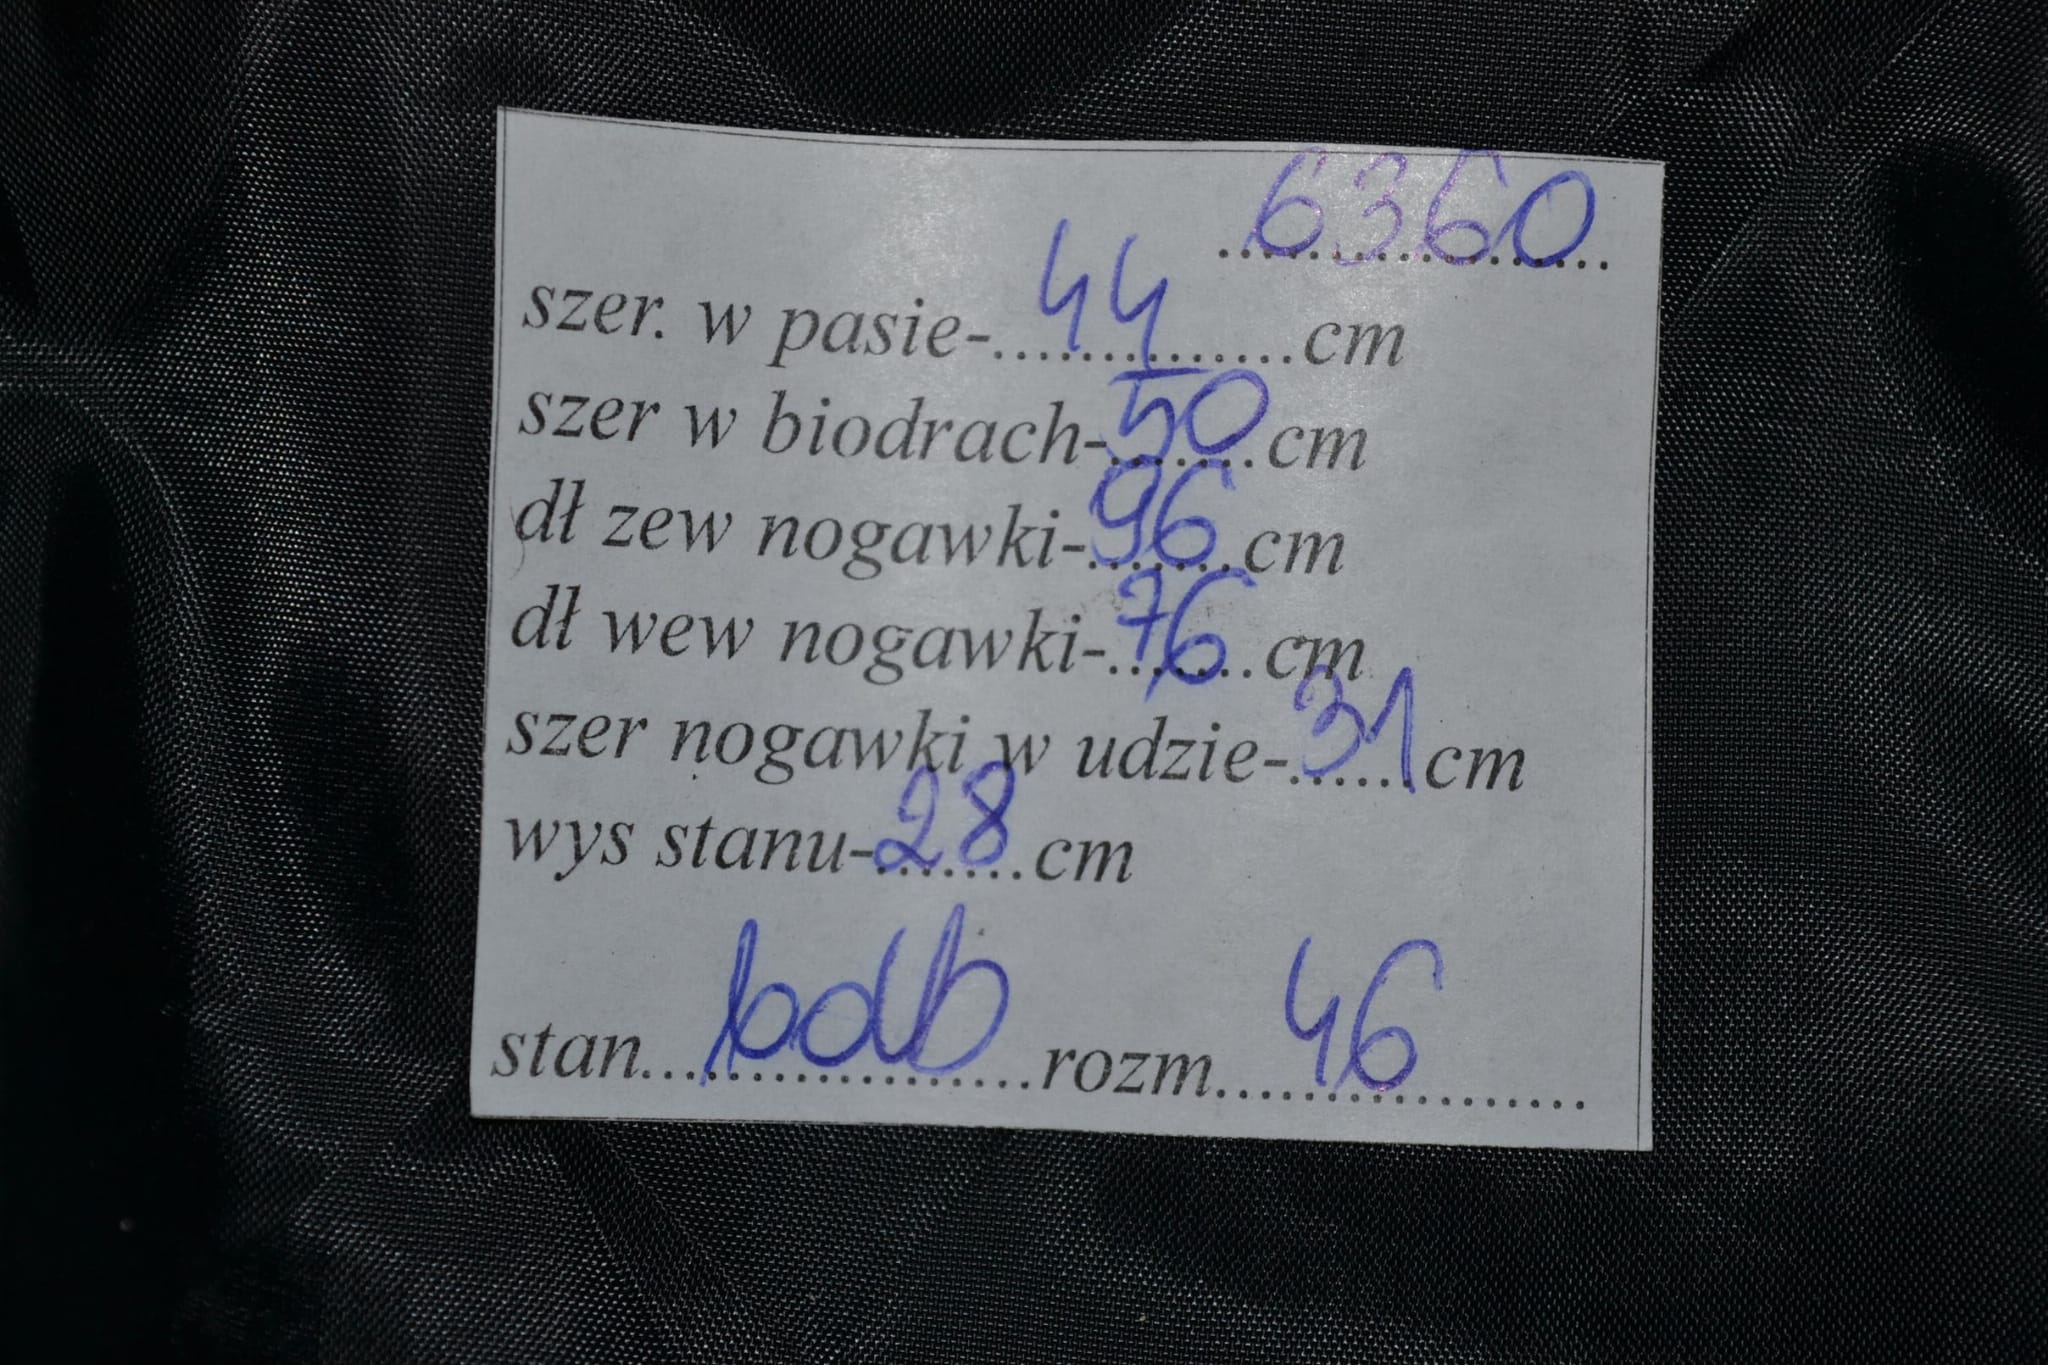 6360
szer. w pasie-...44...cm
szer w biodrach-.50.cm
dł zew nogawki-.96.cm
dł wew nogawki-.76.cm
szer nogawki w udzie-.31cm
wys stanu-.28.cm
stan...bdb...rozm...46...